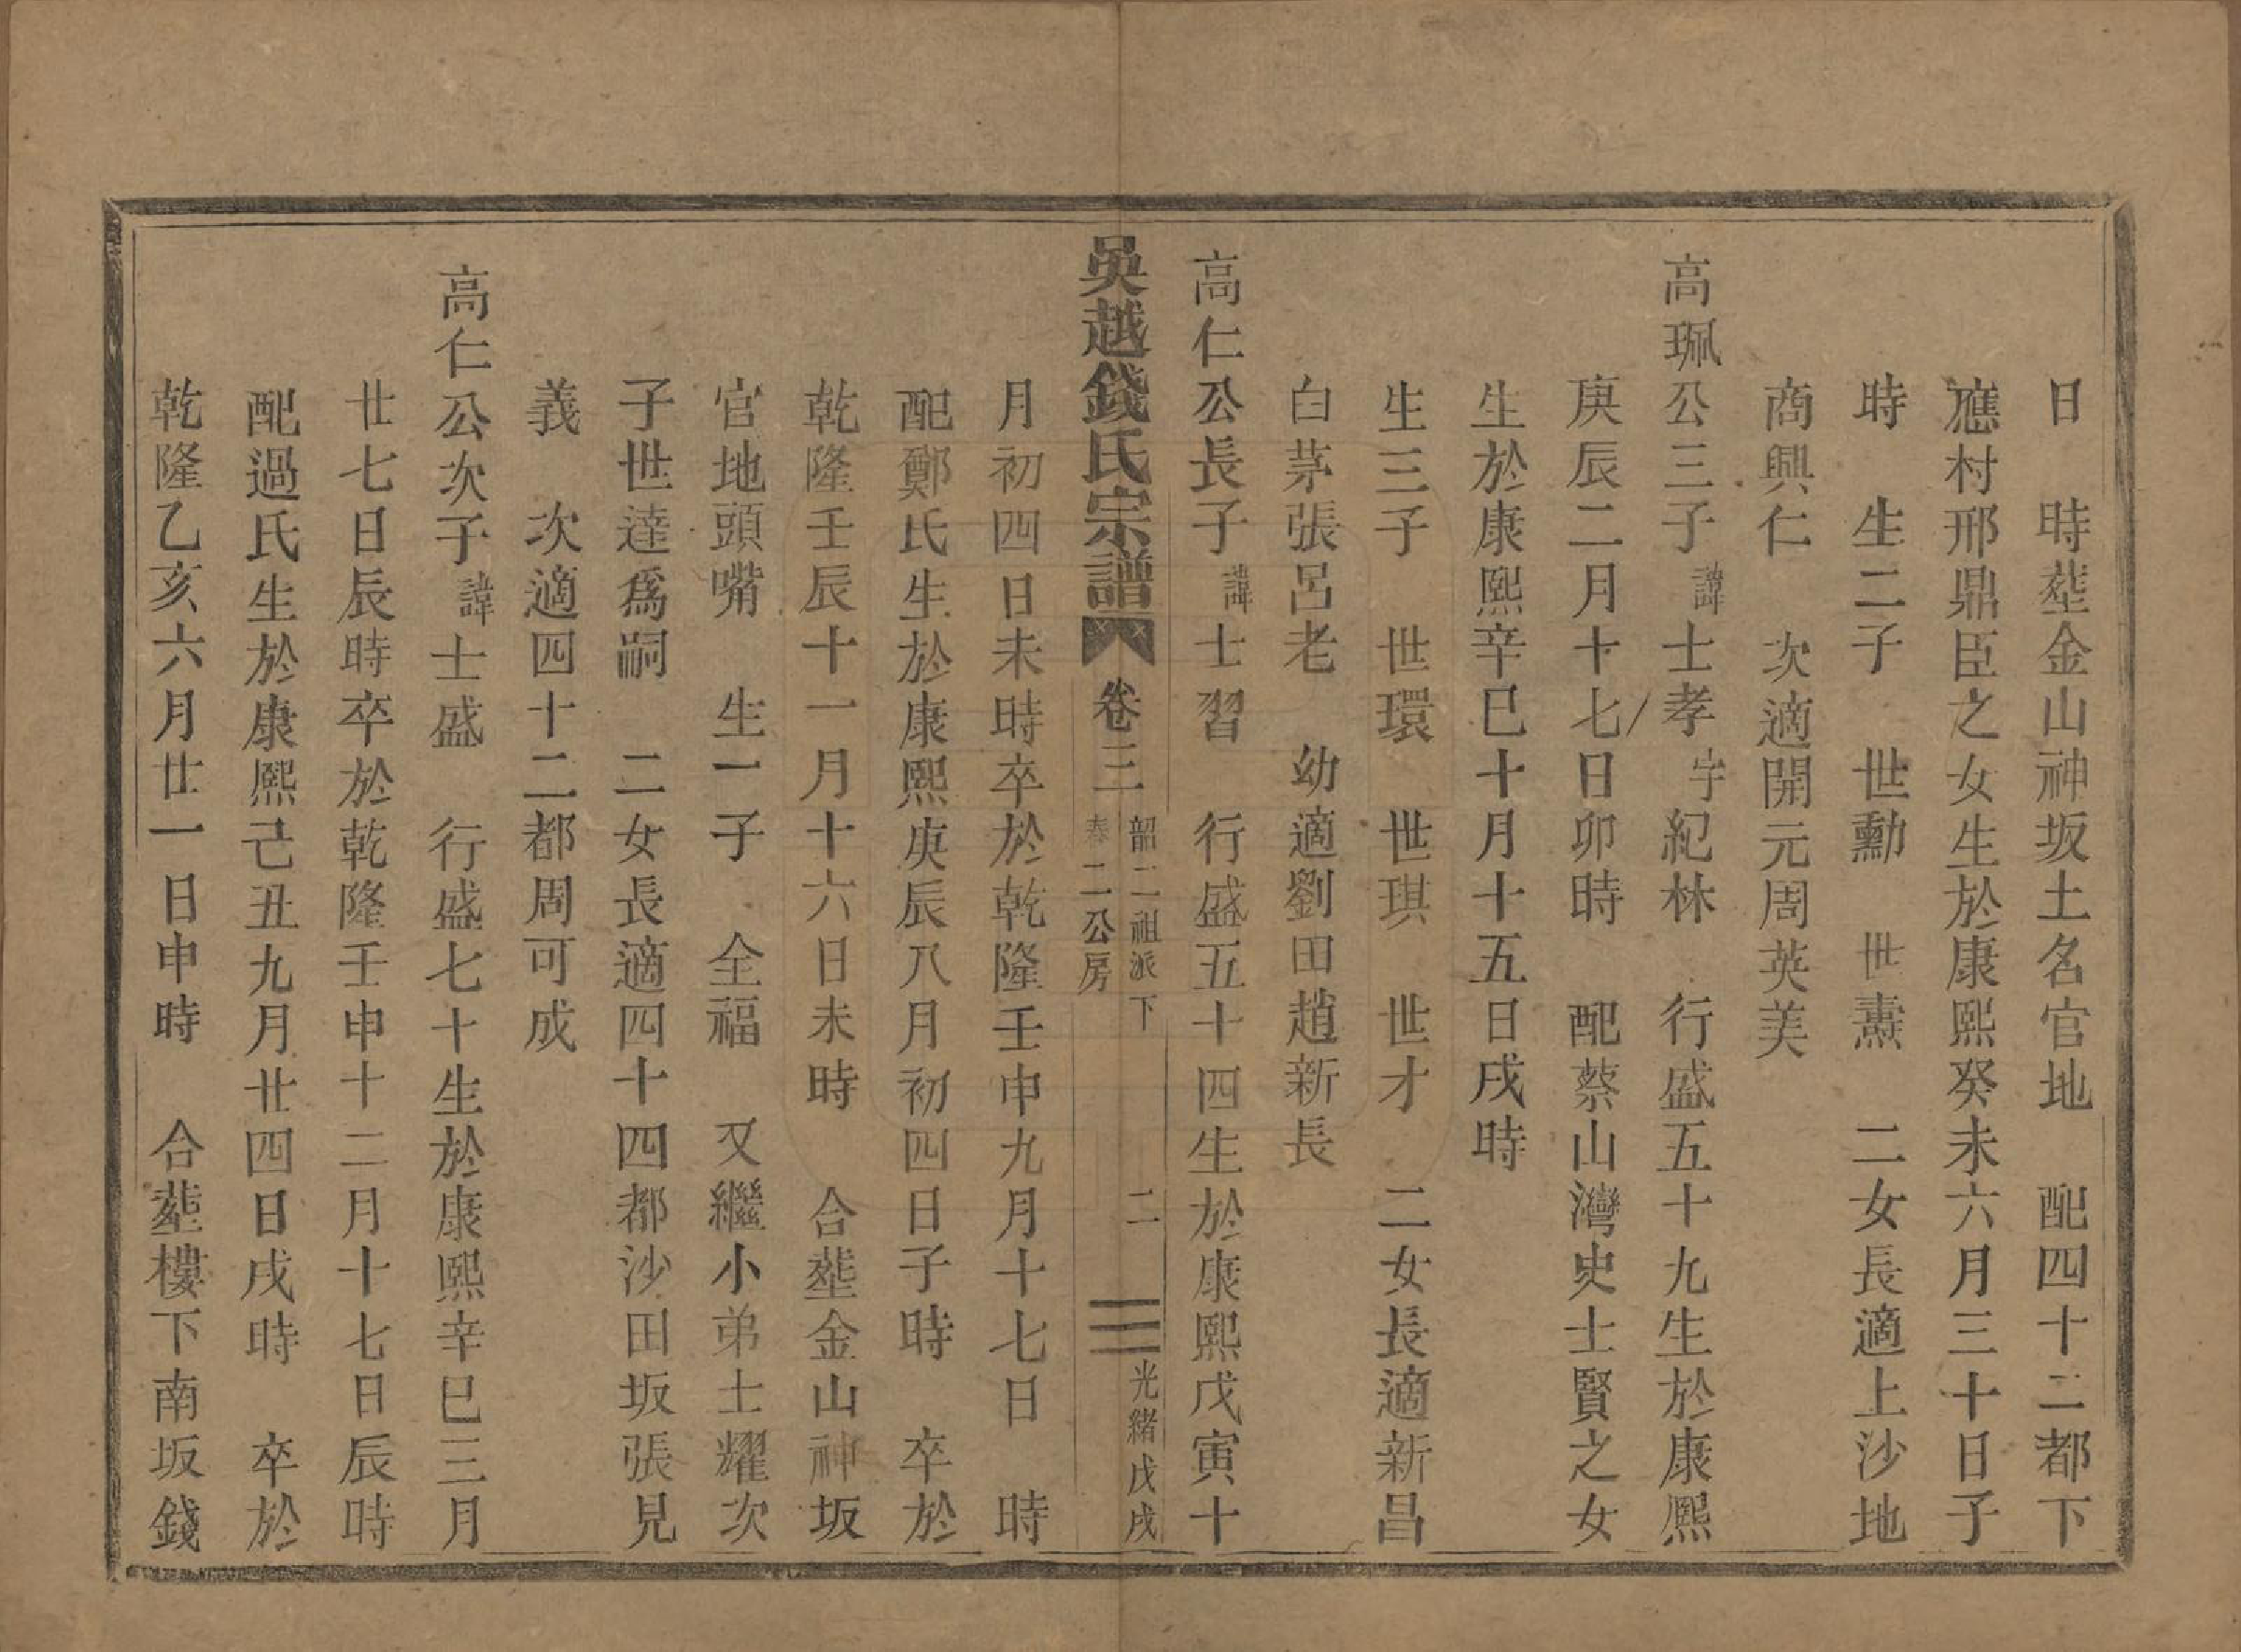 日　時塟金山神坂土名官地　配四十二都下
應村邢鼎臣之女生於康熙癸未六月三十日子
時　生二子　世勳　世燾　二女長適上沙地
商興仁　次適開元周英美
高珮公三子諱士孝字紀林　行盛五十九生於康熙
庚辰二月十七日卯時　配蔡山灣史士賢之女
生於康熙辛巳十月十五日戌時
生三子　世環　世琪　世才　二女長適新昌
白茅張呂老　幼適劉田趙新長
高仁公長子諱士習　行盛五十四生於康熙戊寅十
吳越錢氏宗譜　卷三　韶二祖派下　奉二公房　二　光緒戊戌
月初四日未時卒於乾隆壬申九月十七日　時
配鄭氏生於康熙庚辰八月初四日子時　卒於
乾隆壬辰十一月十六日未時　合塟金山神坂
官地頭嘴　生一子　全福　又繼小弟士耀次
子世達爲嗣　二女長適四十四都沙田坂張見
義　次適四十二都周可成
高仁公次子諱士盛　行盛七十生於康熙辛巳三月
廿七日辰時卒於乾隆壬申十二月十七日辰時
配過氏生於康熙己丑九月廿四日戌時　卒於
乾隆乙亥六月廿一日申時　合塟樓下南坂錢